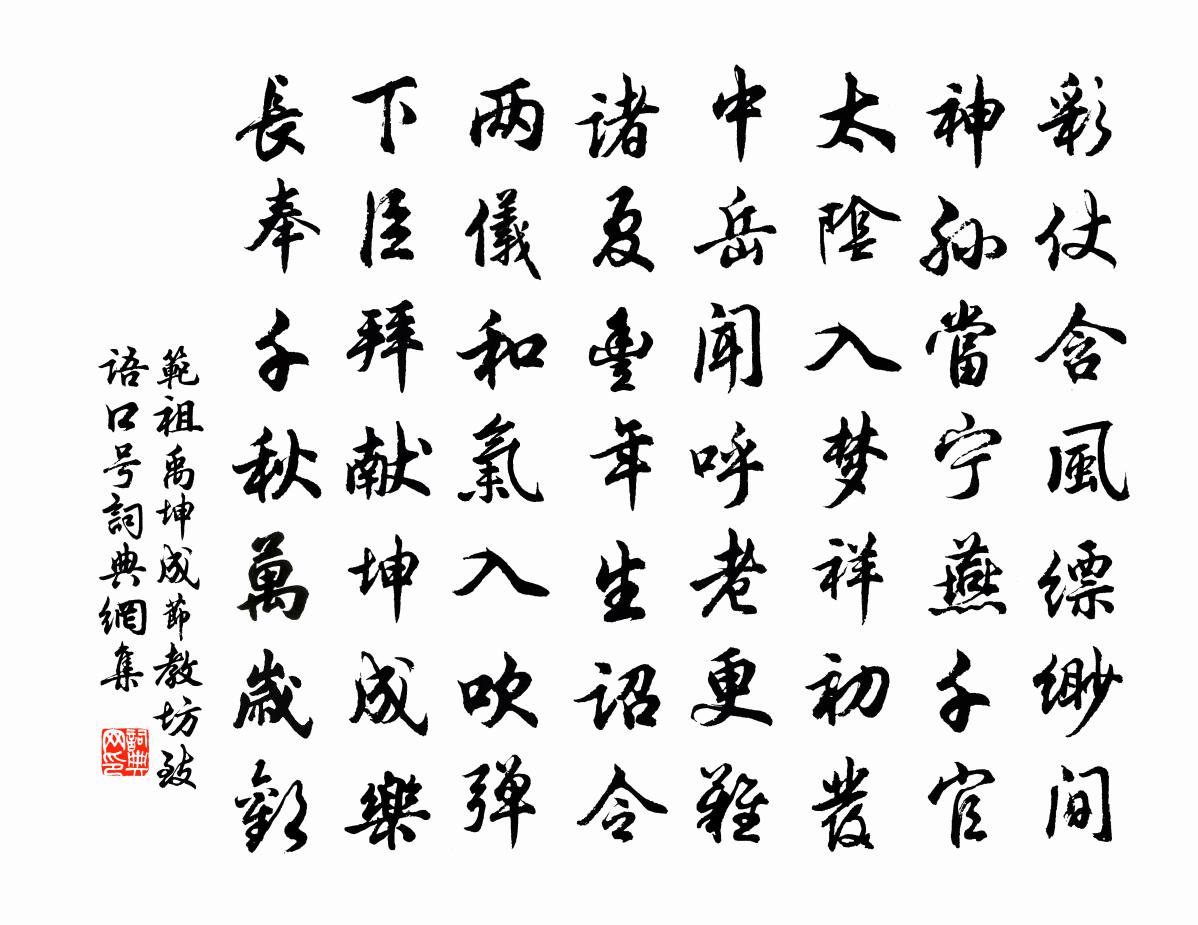 彩仗含風缥缈间
神孙當宁燕千官
太陰入梦祥初發
中岳闻呼老更難
诸夏豊年生诏令
两儀和氣入吹弹
下臣拜献坤成樂
長奉千秋萬歲歡
範祖禹坤成節教坊致
语口号詞典網集
詞典
网印